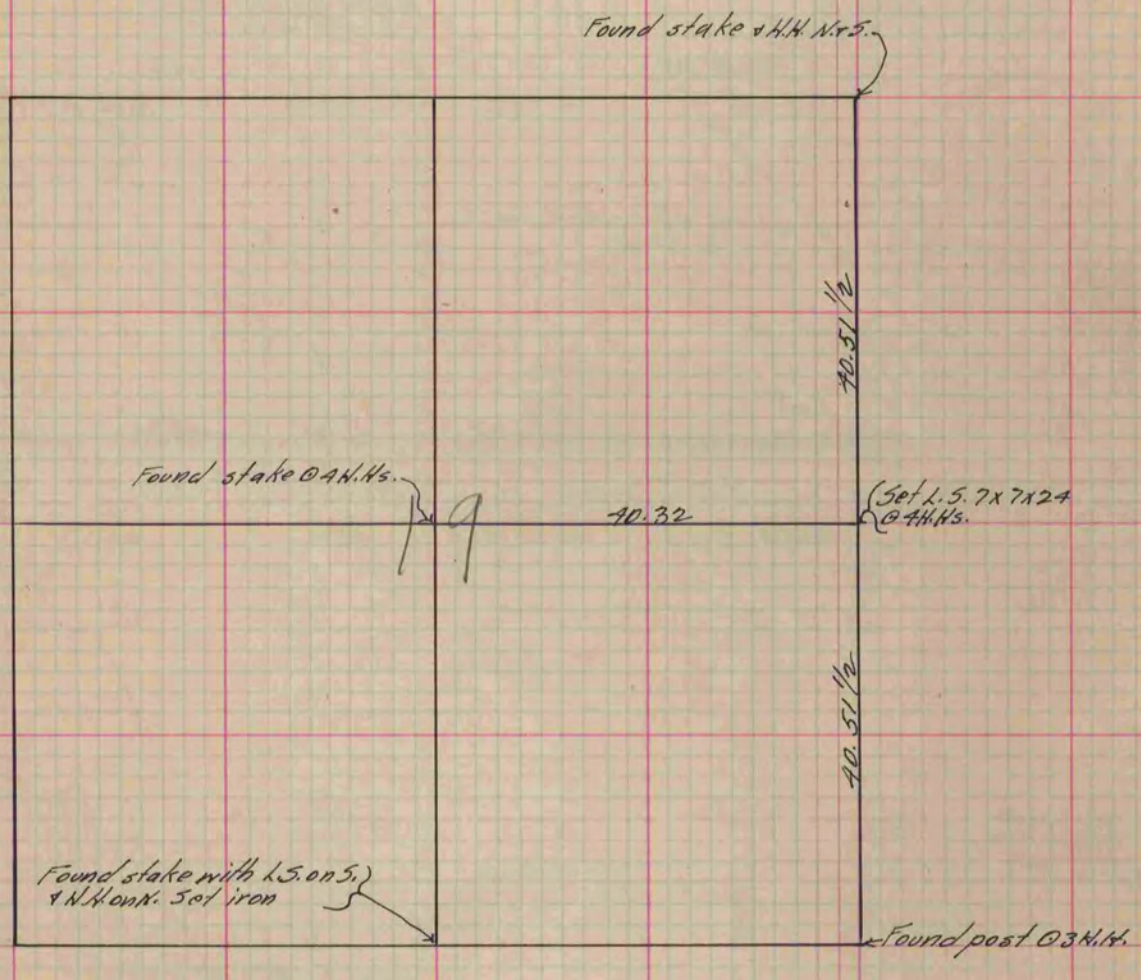 Found stake & H.H. N. & S.
40.51 1/2
Found stake @ 4 H.Hs.
19
40.32
Set L.S. 7x7x24
@ 4 H.Hs.
40.51 1/2
Found stake with L.S. on S.
& H.H. on N. Set iron
Found post @ 3 H.H.